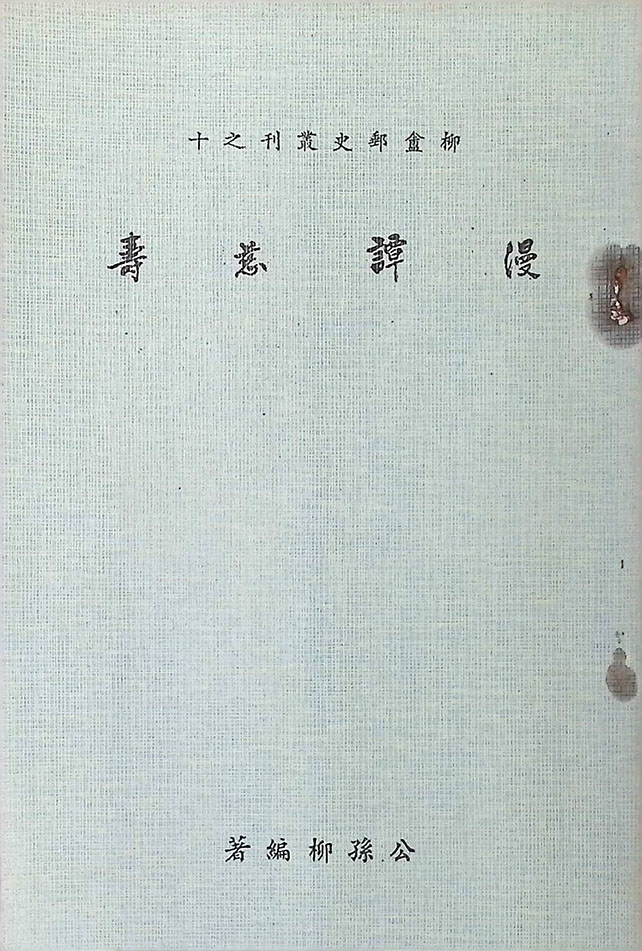 柳盦郵史叢刊之十
漫譚慈壽
公孫柳編著